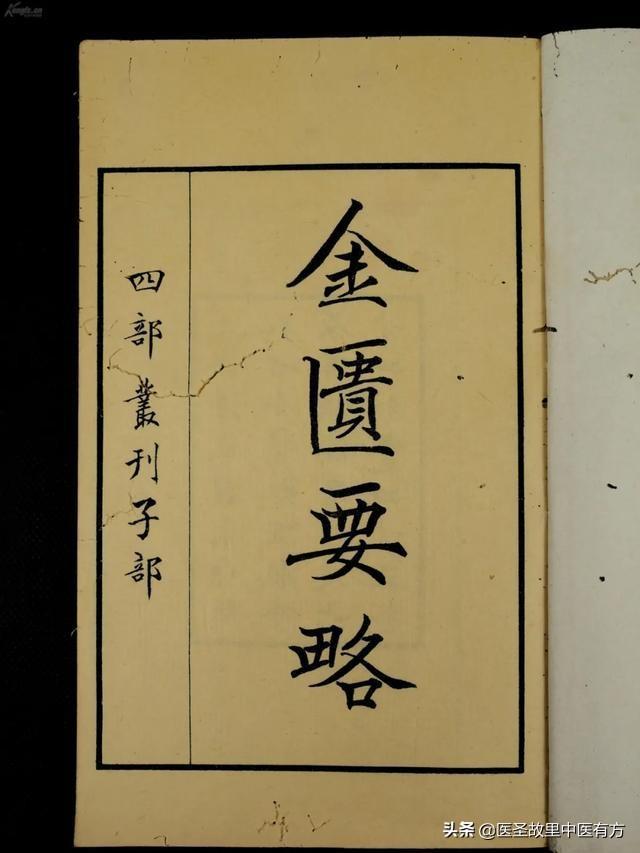 金匱要略
四部叢刊子部
Kongfz.cn
头条 @医圣故里中医有方